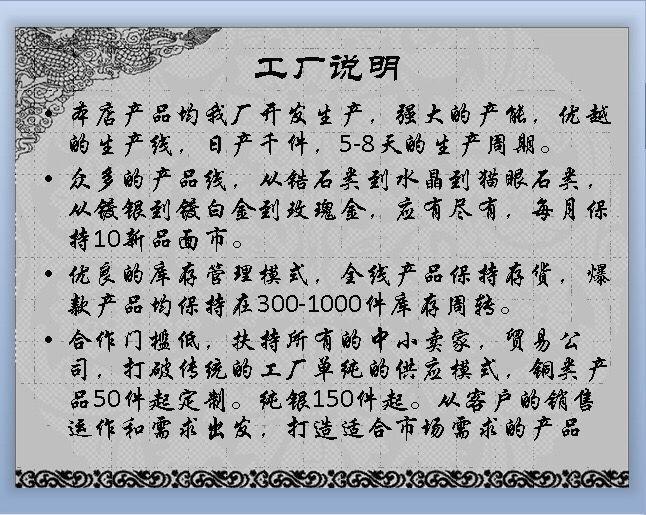 工厂说明
• 本店产品均我厂开发生产，强大的产能，优越
的生产线，日产千件，5-8天的生产周期。
• 众多的产品线，从锆石类到水晶到猫眼石类，
从镀银到镀白金到玫瑰金，应有尽有，每月保
持10新品面市。
• 优良的库存管理模式，全线产品保持存货，爆
款产品均保持在300-1000件库存周转。
• 合作门槛低，扶持所有的中小卖家，贸易公
司，打破传统的工厂单纯的供应模式，铜类产
品50件起定制。纯银150件起。从客户的销售
运作和需求出发，打造适合市场需求的产品